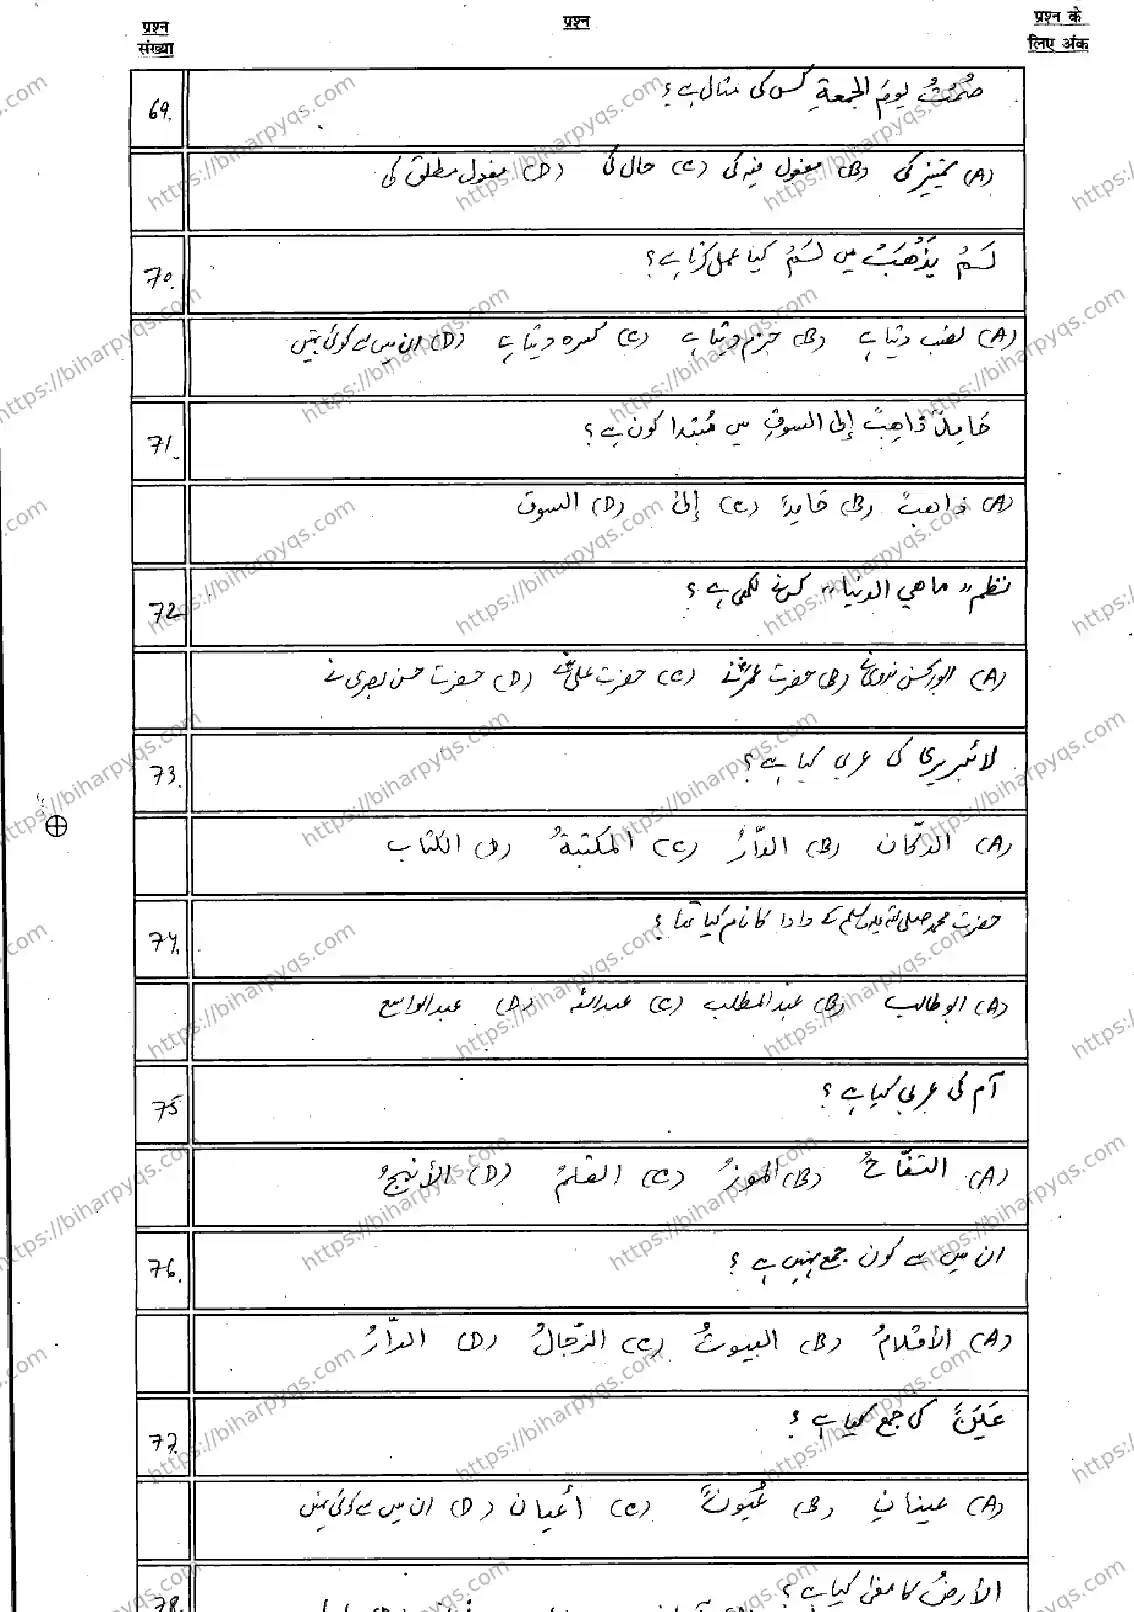 प्रश्न संख्या
प्रश्न
प्रश्न के लिए अंक
69.
صُمْتُ يومَ الجمعةِ کس کی مثال ہے؟
(A) تمیز کی (B) مفعول فیہ کی (C) حال کی (D) مفعول مطلق کی
70.
لَمْ يَذْهَبْ میں لَمْ کیا عمل کرتا ہے؟
(A) نصب دیتا ہے (B) جزم دیتا ہے (C) کسرہ دیتا ہے (D) ان میں سے کوئی نہیں
71.
ذاهِبٌ إلى السوقِ میں مُبتدا کون ہے؟
(A) ذاهبٌ (B) (C) إلى (D) السوق
72
نظم "ماهي الدنيا" کس نے لکھی ہے؟
(A) ابوالحسن ندوی نے (B) حضرت عمرؓ نے (C) حضرت علیؓ نے (D) حضرت حسن بصری نے
73.
لائبریری کی عربی کیا ہے؟
(A) الدكان (B) الدّارُ (C) المكتبةُ (D) الكتاب
74.
حضرت محمد صلی اللہ علیہ وسلم کے دادا کا نام کیا تھا؟
(A) ابو طالب (B) عبد المطلب (C) عبداللہ (D) عبدالواسع
75
آم کی عربی کیا ہے؟
(A) التفّاحُ (B) الموزُ (C) القلمُ (D) الأنبجُ
76.
ان میں سے کون جمع نہیں ہے؟
(A) الأقلامُ (B) البيوتُ (C) الرّجالُ (D) الدّارُ
77.
عَيْنٌ کی جمع کیا ہے؟
(A) عينانِ (B) عُيُونٌ (C) أعيان (D) ان میں سے کوئی نہیں
78.
الأرضُ کا معنی کیا ہے؟
https://biharpyqs.com